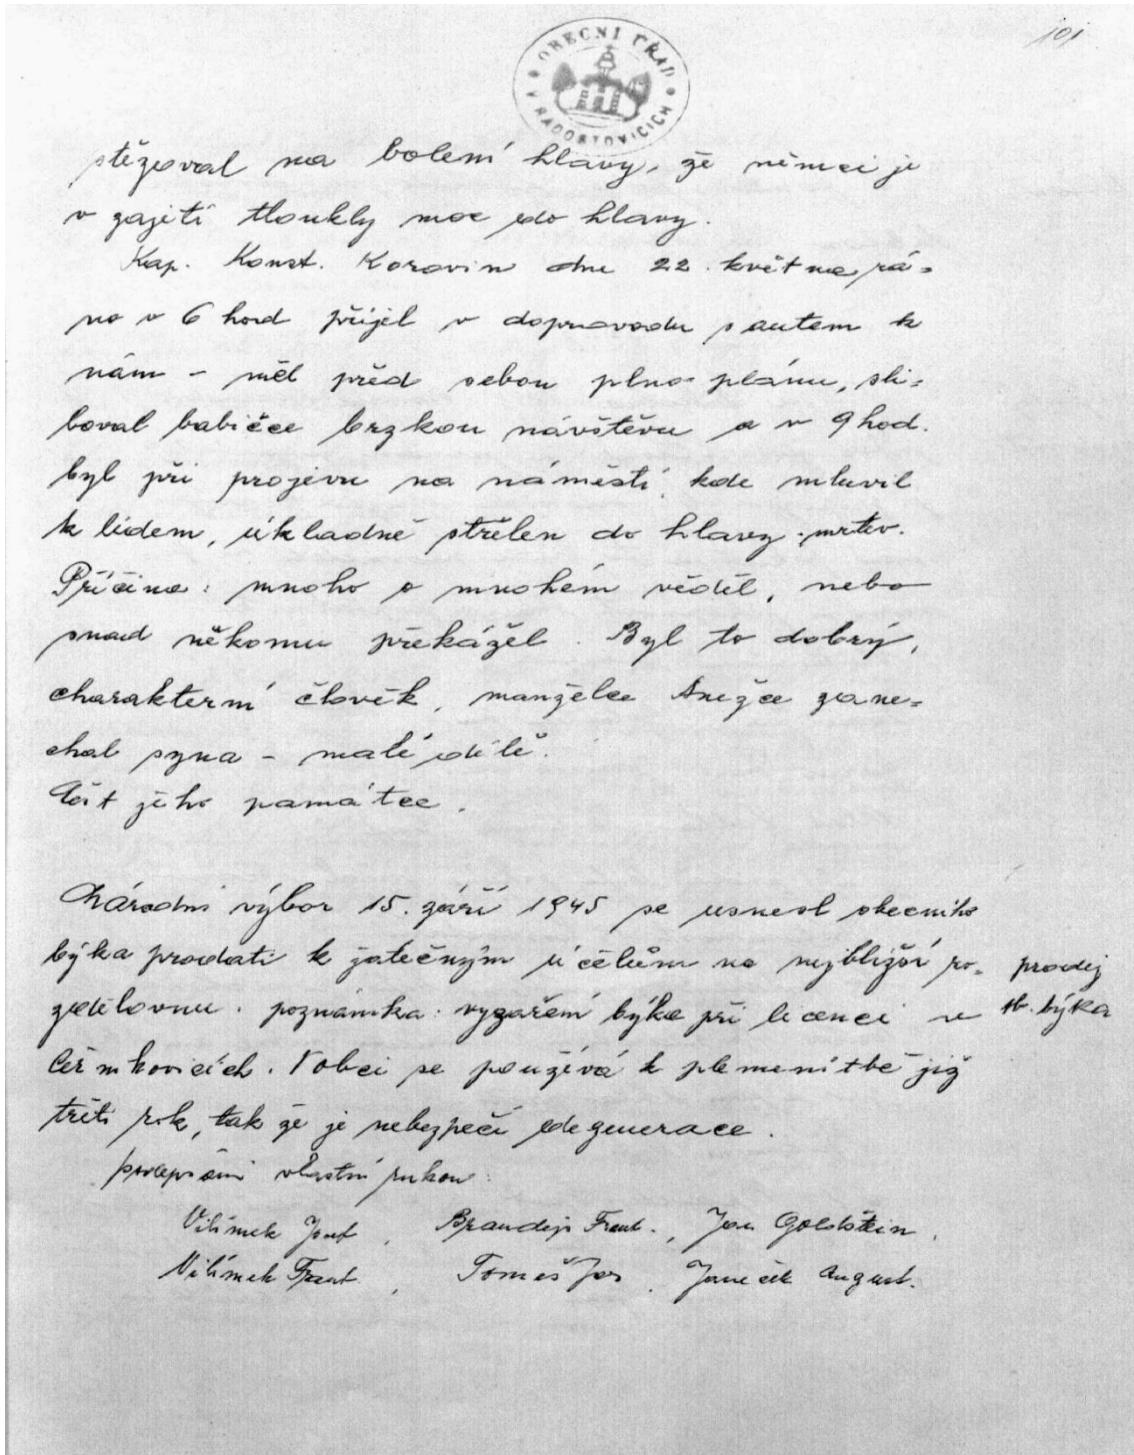 101
OBECNÍ ÚŘAD
V RADOSTOVICÍCH
stěžoval na bolení hlavy, že němci je
v zajetí tloukly moc do hlavy.
Kap. Konst. Korovin dne 22. května rá=
no v 6 hod přijel v doprovodu s autem k
nám - měl před sebou plno plánu, sli=
boval babičce brzkou návštěvu a v 9 hod.
byl při projevu na náměstí, kde mluvil
k lidem, úkladně střelen do hlavy - mrtev.
Příčina: mnoho o mnohém věděl, nebo
snad někomu překážel. Byl to dobrý,
charakterní člověk, manželce Anežce zane=
chal syna - malé dítě.
Čest jeho památce.
Národní výbor 15. září 1945 se usnesl obecního
býka prodati k jatečným účelům na nejbližší ro=
zdělovnu. poznámka: vyzařění býka při licenci v
prodej
ob. býka
Čermkovicích. V obci se používá k plemenitbě již
třetí rok, tak že je nebezpečí degenerace.
podepsáni vlastní rukou:
Vilímek Josef, Brandejs Frant., Jan Goldštein,
Vilímek Frant., Tomeš Jos, Janeček August.